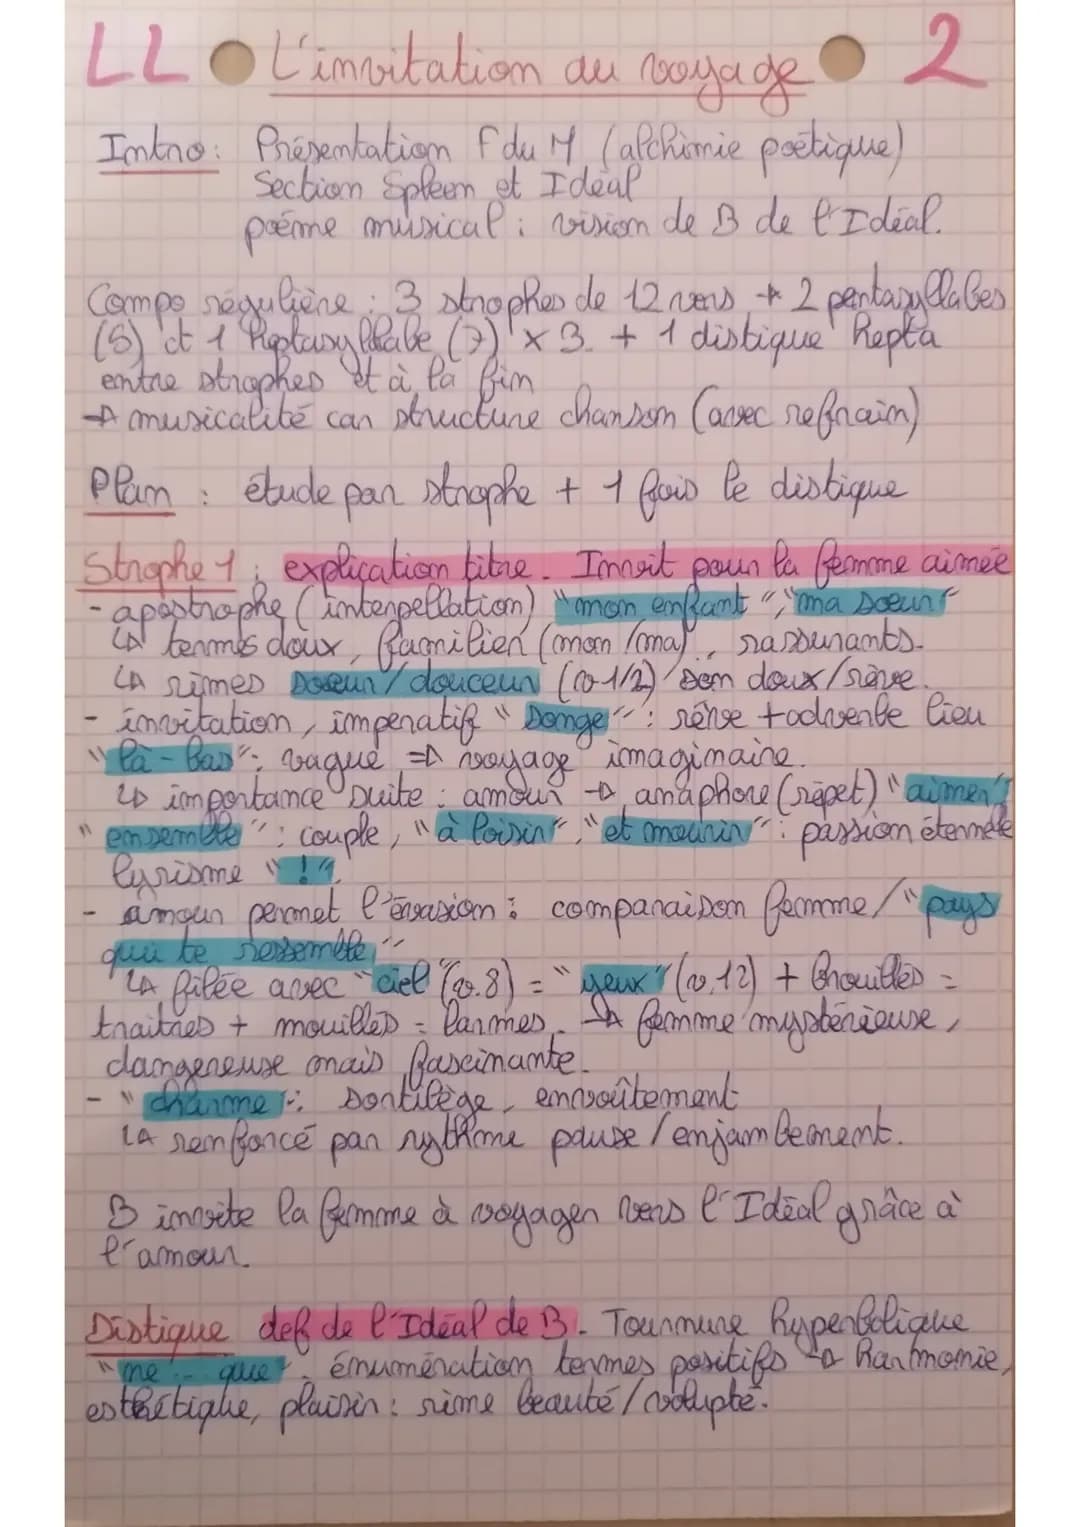 LL L'invitation au voyage 2
Intro: Présentation F du M (alchimie poétique)
Section Spleen et Idéal
poème musical : vision de B de l'Idéal.
Compo régulière : 3 strophes de 12 vers → 2 pentasyllabes
(5) et 1 heptasyllabe (7) x 3. + 1 distique hepta
entre strophes et à la fin
→ musicalité car structure chanson (avec refrain)
Plan : étude par strophe + 1 fois le distique
Strophe 1 : explication titre. Invit pour la femme aimée
- apostrophe (interpellation) "mon enfant", "ma soeur"
↳ termes doux, familier (mon/ma), rassurants.
↳ rimes soeur/douceur (v 1/2) son doux/rêve.
- invitation, impératif "Songe" : rêve + adverbe lieu
"là-bas" : vague => voyage imaginaire.
↳ importance suite : amour → anaphore (répet) "aimer"
"ensemble" : couple, "à loisir", "et mourir" : passion éternelle
lyrisme "!".
- amour permet l'évasion : comparaison femme/"pays
qui te ressemble"
↳ filée avec "ciel" (v.8) = "yeux" (v.12) + brouillés =
traitres + mouillés = larmes. → femme mystérieuse,
dangereuse mais fascinante.
- "charme" : sortilège, envoûtement
↳ renforcé par rythme pause/enjambement.
B invite la femme à voyager vers l'Idéal grâce à
l'amour.
Distique def de l'Idéal de B. Tournure hyperbolique
"ne... que", énumération termes positifs → harmonie,
esthétique, plaisir : rime beauté/volupté.